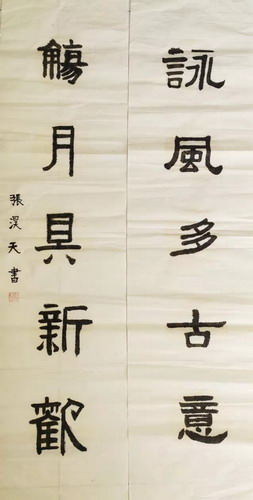 詠風多古意
觴月具新歡
張溪天書